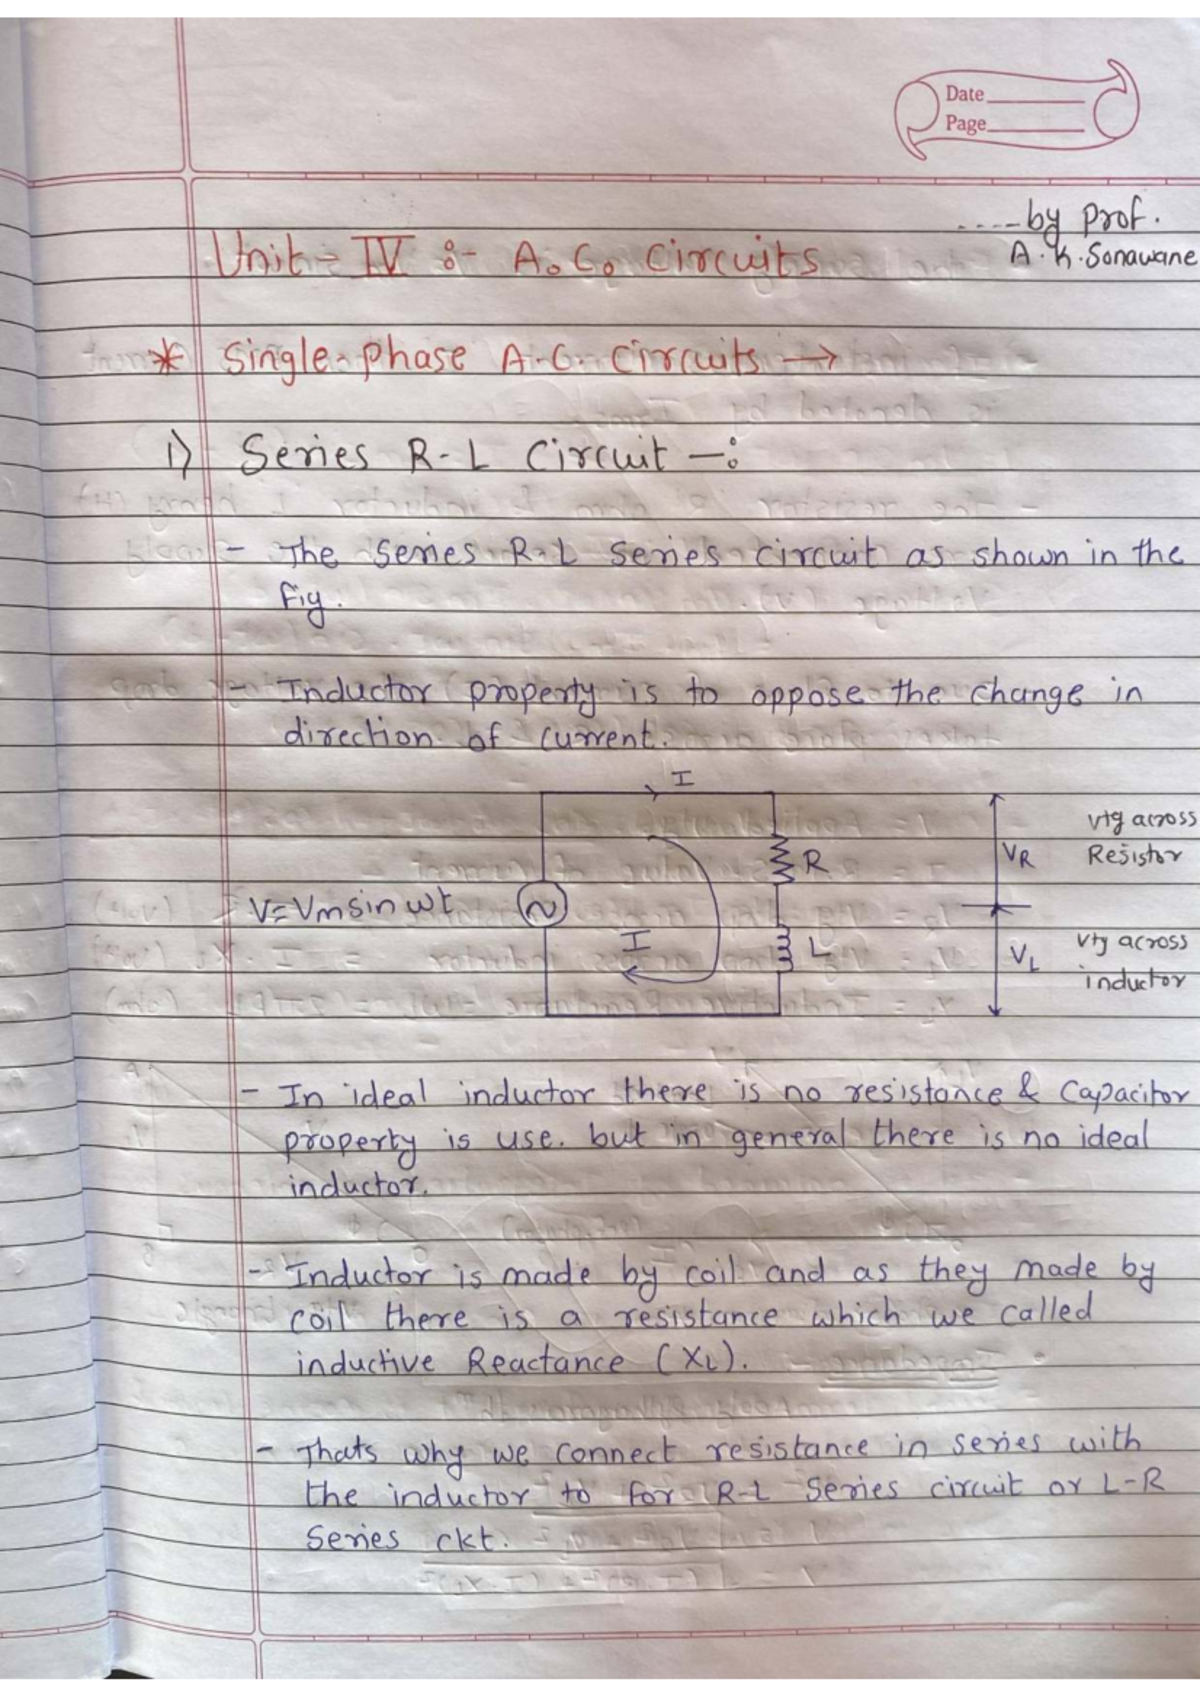 Date
Page
----by prof.
A.K.Sonawane
Unit-IV :- A.C. Circuits
* Single-phase A.C. Circuits →
1) Series R-L Circuit -:
- The Series R-L Series circuit as shown in the
fig.
- Inductor property is to oppose the change in
direction of current.
I
vtg across
Resistor
VR
R
V=Vm sin wt
I
L
VL
vtg across
inductor
- In ideal inductor there is no resistance & Capacitor
property is use. but in general there is no ideal
inductor.
- Inductor is made by coil and as they made by
coil there is a resistance which we called
inductive Reactance (XL).
- Thats why we connect resistance in series with
the inductor to for R-L Series circuit or L-R
Series ckt.